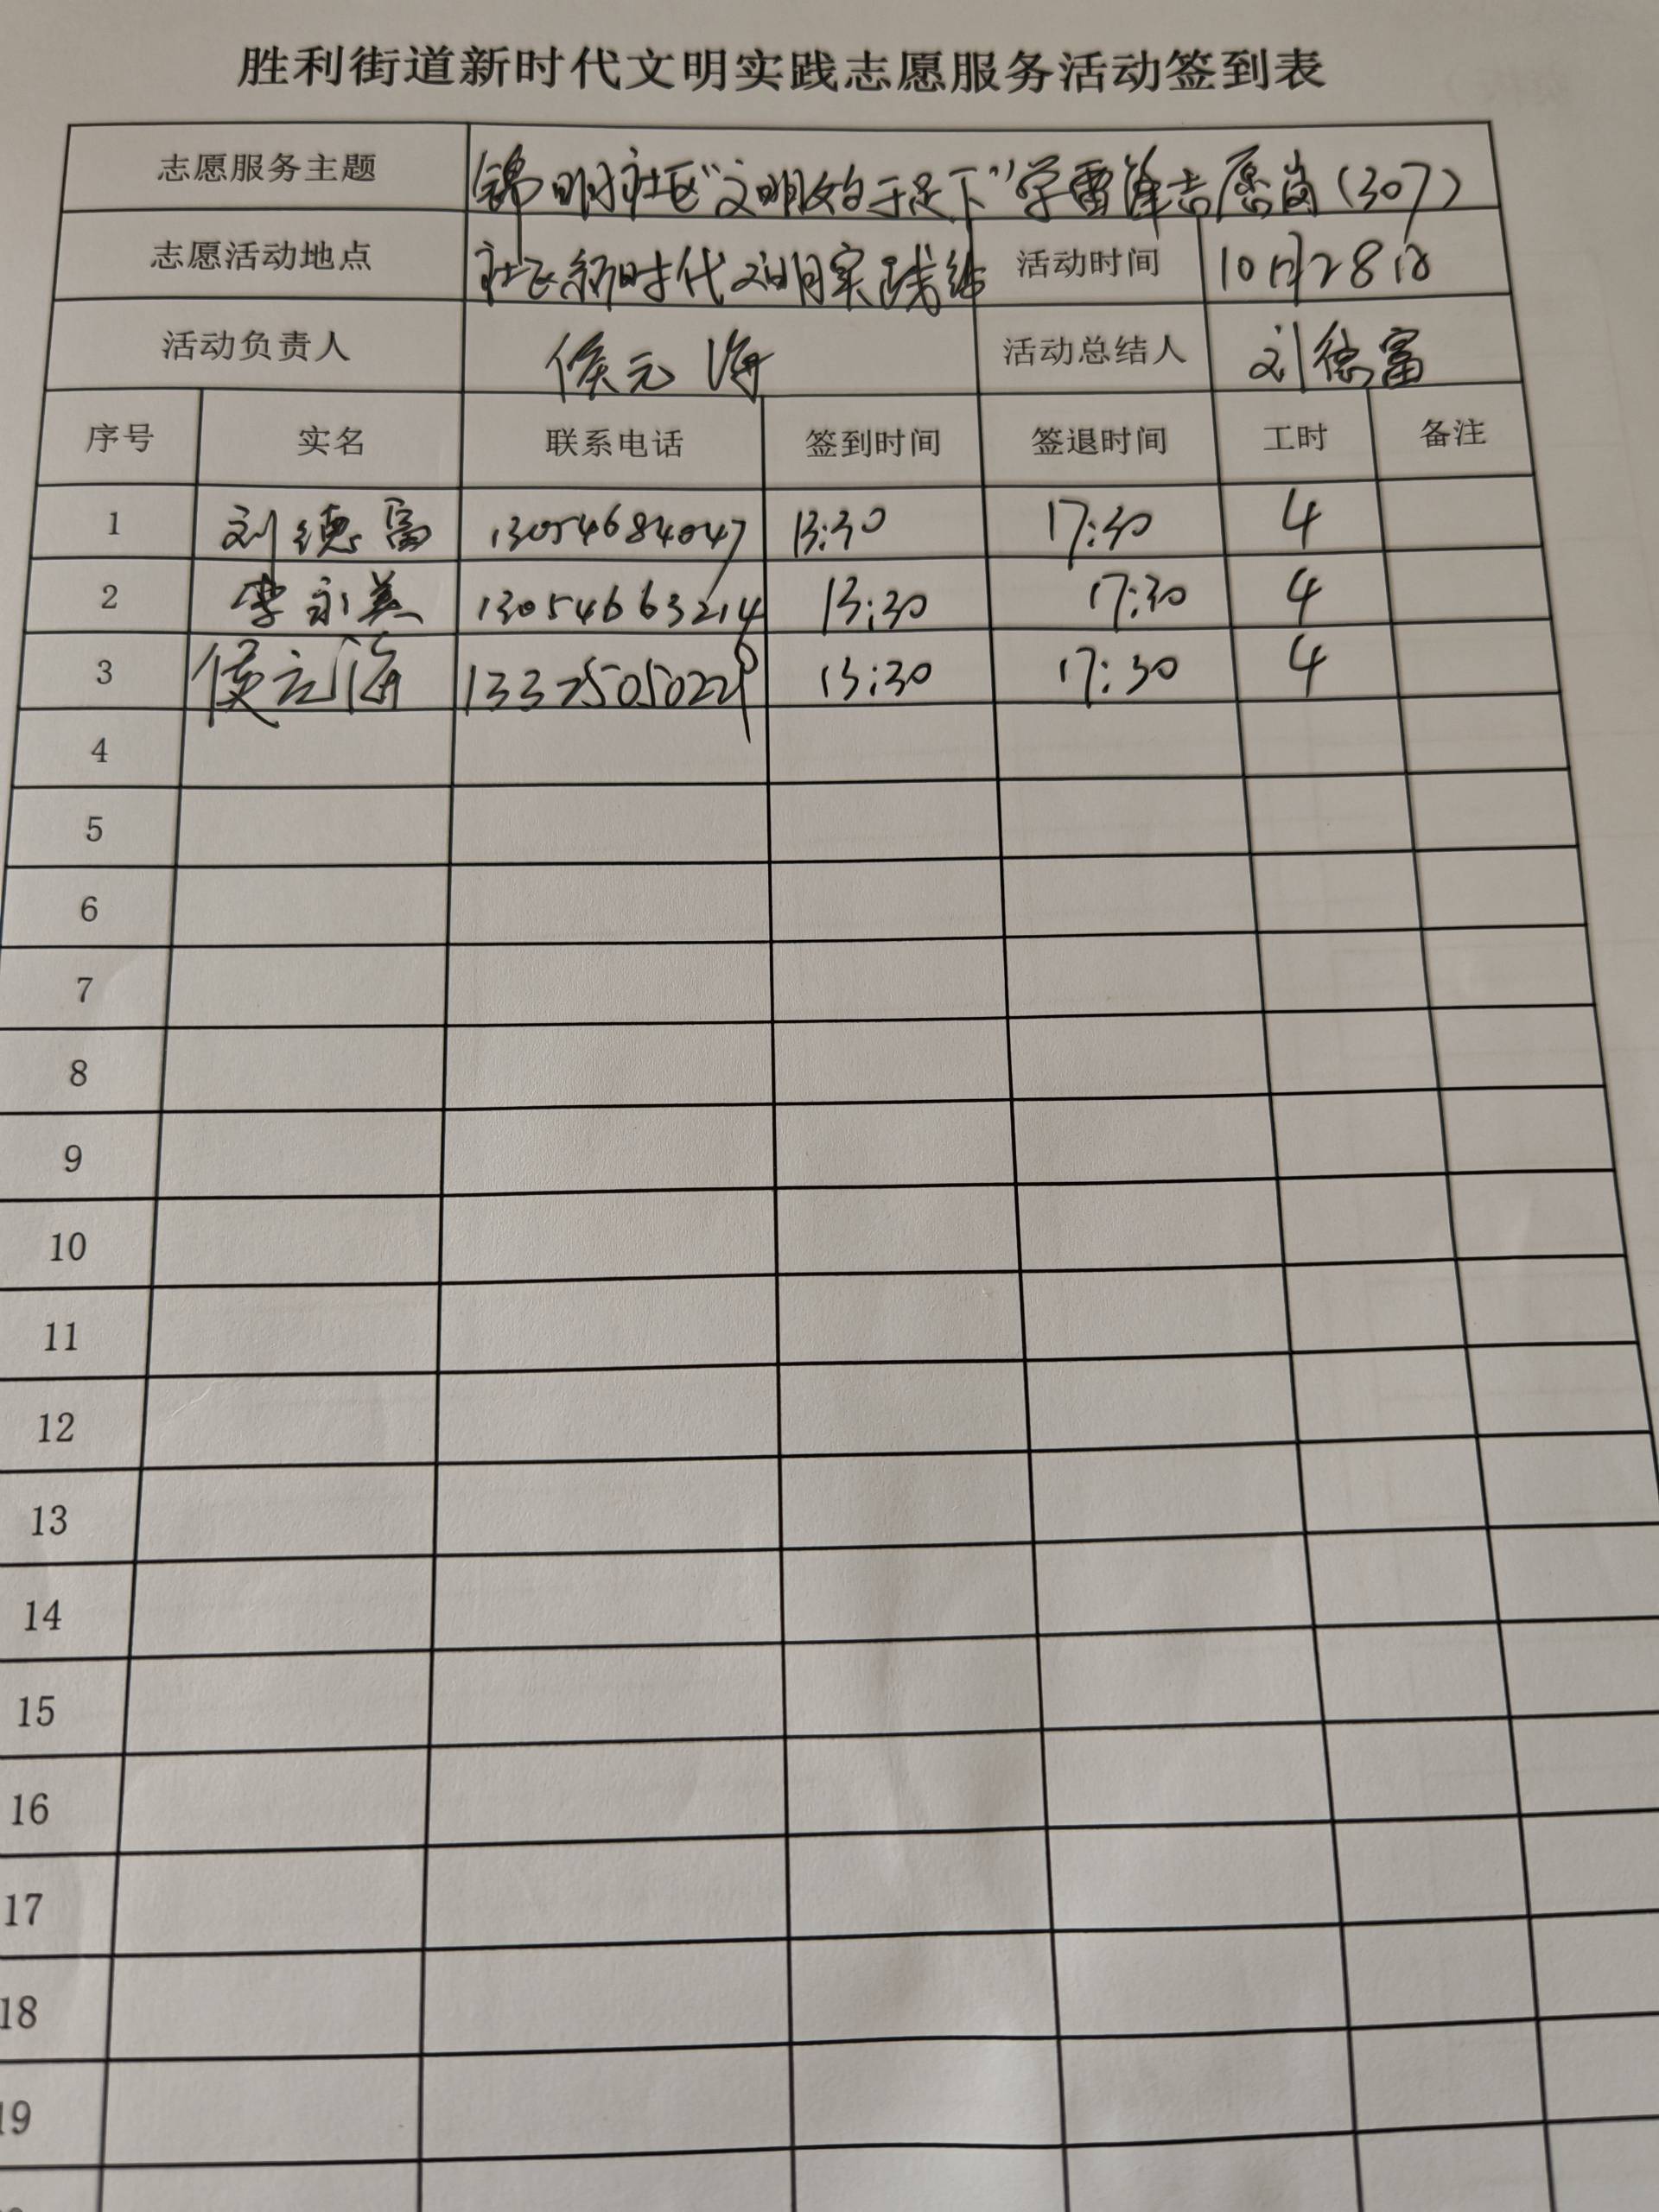 胜利街道新时代文明实践志愿服务活动签到表
志愿服务主题 锦明社区“文明始于足下”学雷锋志愿岗(307)
志愿活动地点 社区新时代文明实践站 活动时间 10月28日
活动负责人 侯元海 活动总结人 刘德富
序号 实名 联系电话 签到时间 签退时间 工时 备注
1 刘德富 13054684047 13:30 17:30 4
2 李永美 13054663214 13:30 17:30 4
3 侯元海 13:30 17:30 4
4
5
6
7
8
9
10
11
12
13
14
15
16
17
18
19